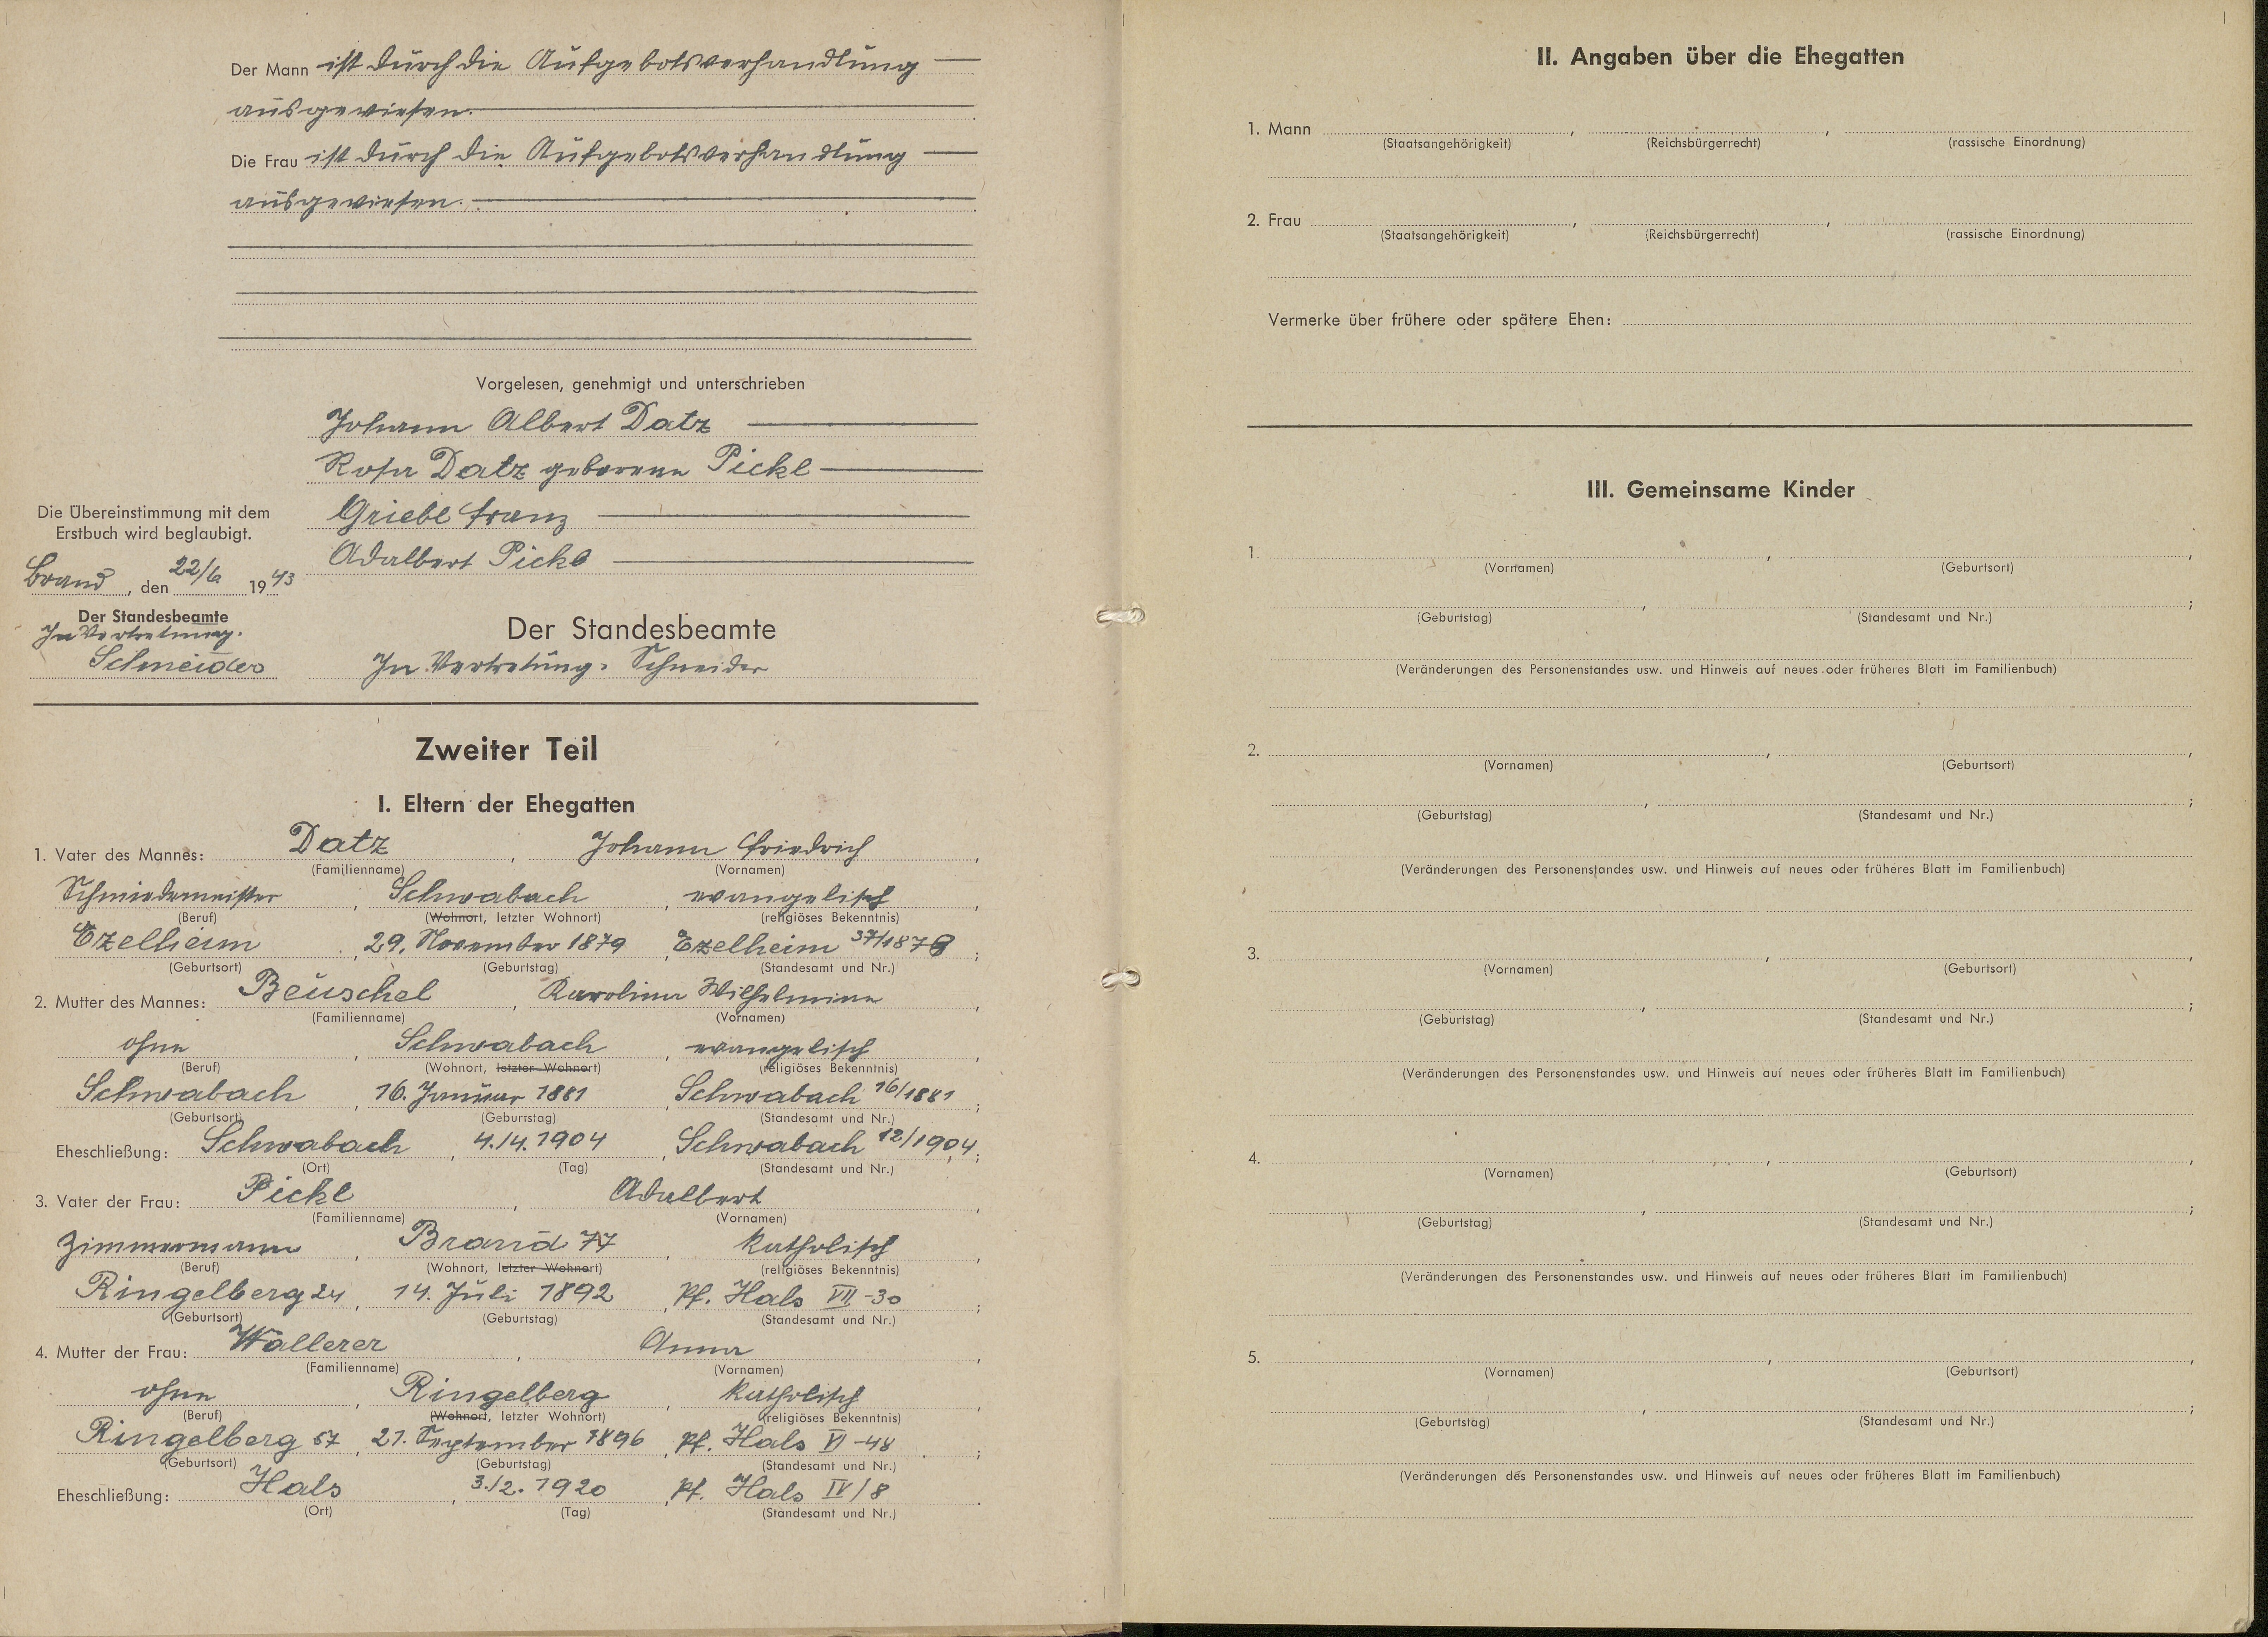 Der Mann ist durch die Aufgebotsverhandlung
ausgewiesen.
Die Frau ist durch die Aufgebotsverhandlung
ausgewiesen.
Vorgelesen, genehmigt und unterschrieben
Johann Albert Datz
Rosa Datz geborene Pickl
Griebl Franz
Adalbert Pickl
Die Übereinstimmung mit dem
Erstbuch wird beglaubigt.
Brand, den 22/6 1943
Der Standesbeamte
In Vertretung.
Schneider
Der Standesbeamte
In Vertretung: Schneider
Zweiter Teil
I. Eltern der Ehegatten
1. Vater des Mannes: Datz, Johann Friedrich,
(Familienname) (Vornamen)
Schmiedemeister, Schwabach, evangelisch,
(Beruf) (Wohnort, letzter Wohnort) (religiöses Bekenntnis)
Ezelheim, 29. November 1879, Ezelheim 37/1879;
(Geburtsort) (Geburtstag) (Standesamt und Nr.)
2. Mutter des Mannes: Beuschel, Karolina Wilhelmine,
(Familienname) (Vornamen)
ohne, Schwabach, evangelisch,
(Beruf) (Wohnort, letzter Wohnort) (religiöses Bekenntnis)
Schwabach, 16. Januar 1881, Schwabach 16/1881;
(Geburtsort) (Geburtstag) (Standesamt und Nr.)
Eheschließung: Schwabach, 4./4. 1904, Schwabach 12/1904;
(Ort) (Tag) (Standesamt und Nr.)
3. Vater der Frau: Pickl, Adalbert,
(Familienname) (Vornamen)
Zimmermann, Brand 77, katholisch,
(Beruf) (Wohnort, letzter Wohnort) (religiöses Bekenntnis)
Ringelberg 24, 14. Juli 1892, Pf. Hals VII -30;
(Geburtsort) (Geburtstag) (Standesamt und Nr.)
4. Mutter der Frau: Wallerer, Anna,
(Familienname) (Vornamen)
ohne, Ringelberg, katholisch,
(Beruf) (Wohnort, letzter Wohnort) (religiöses Bekenntnis)
Ringelberg 57, 21. September 1896, Pf. Hals VI -48;
(Geburtsort) (Geburtstag) (Standesamt und Nr.)
Eheschließung: Hals, 3./2. 1920, Pf. Hals IV/8.
(Ort) (Tag) (Standesamt und Nr.)
II. Angaben über die Ehegatten
1. Mann , ,
(Staatsangehörigkeit) (Reichsbürgerrecht) (rassische Einordnung)
2. Frau , ,
(Staatsangehörigkeit) (Reichsbürgerrecht) (rassische Einordnung)
Vermerke über frühere oder spätere Ehen:
III. Gemeinsame Kinder
1 , ,
(Vornamen) (Geburtsort)
, ;
(Geburtstag) (Standesamt und Nr.)
(Veränderungen des Personenstandes usw. und Hinweis auf neues oder früheres Blatt im Familienbuch)
2. , ,
(Vornamen) (Geburtsort)
, ;
(Geburtstag) (Standesamt und Nr.)
(Veränderungen des Personenstandes usw. und Hinweis auf neues oder früheres Blatt im Familienbuch)
3. , ,
(Vornamen) (Geburtsort)
, ;
(Geburtstag) (Standesamt und Nr.)
(Veränderungen des Personenstandes usw. und Hinweis auf neues oder früheres Blatt im Familienbuch)
4. , ,
(Vornamen) (Geburtsort)
, ;
(Geburtstag) (Standesamt und Nr.)
(Veränderungen des Personenstandes usw. und Hinweis auf neues oder früheres Blatt im Familienbuch)
5. , ,
(Vornamen) (Geburtsort)
, ;
(Geburtstag) (Standesamt und Nr.)
(Veränderungen des Personenstandes usw. und Hinweis auf neues oder früheres Blatt im Familienbuch)